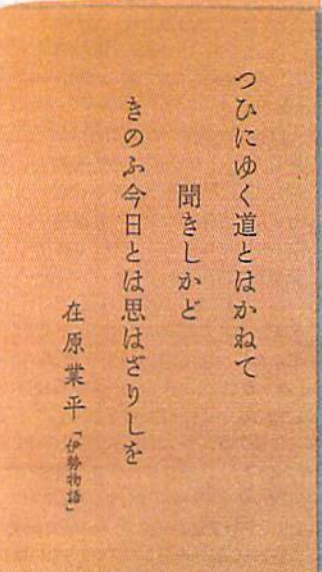 つひにゆく道とはかねて
聞きしかど
きのふ今日とは思はざりしを
在原業平「伊勢物語」